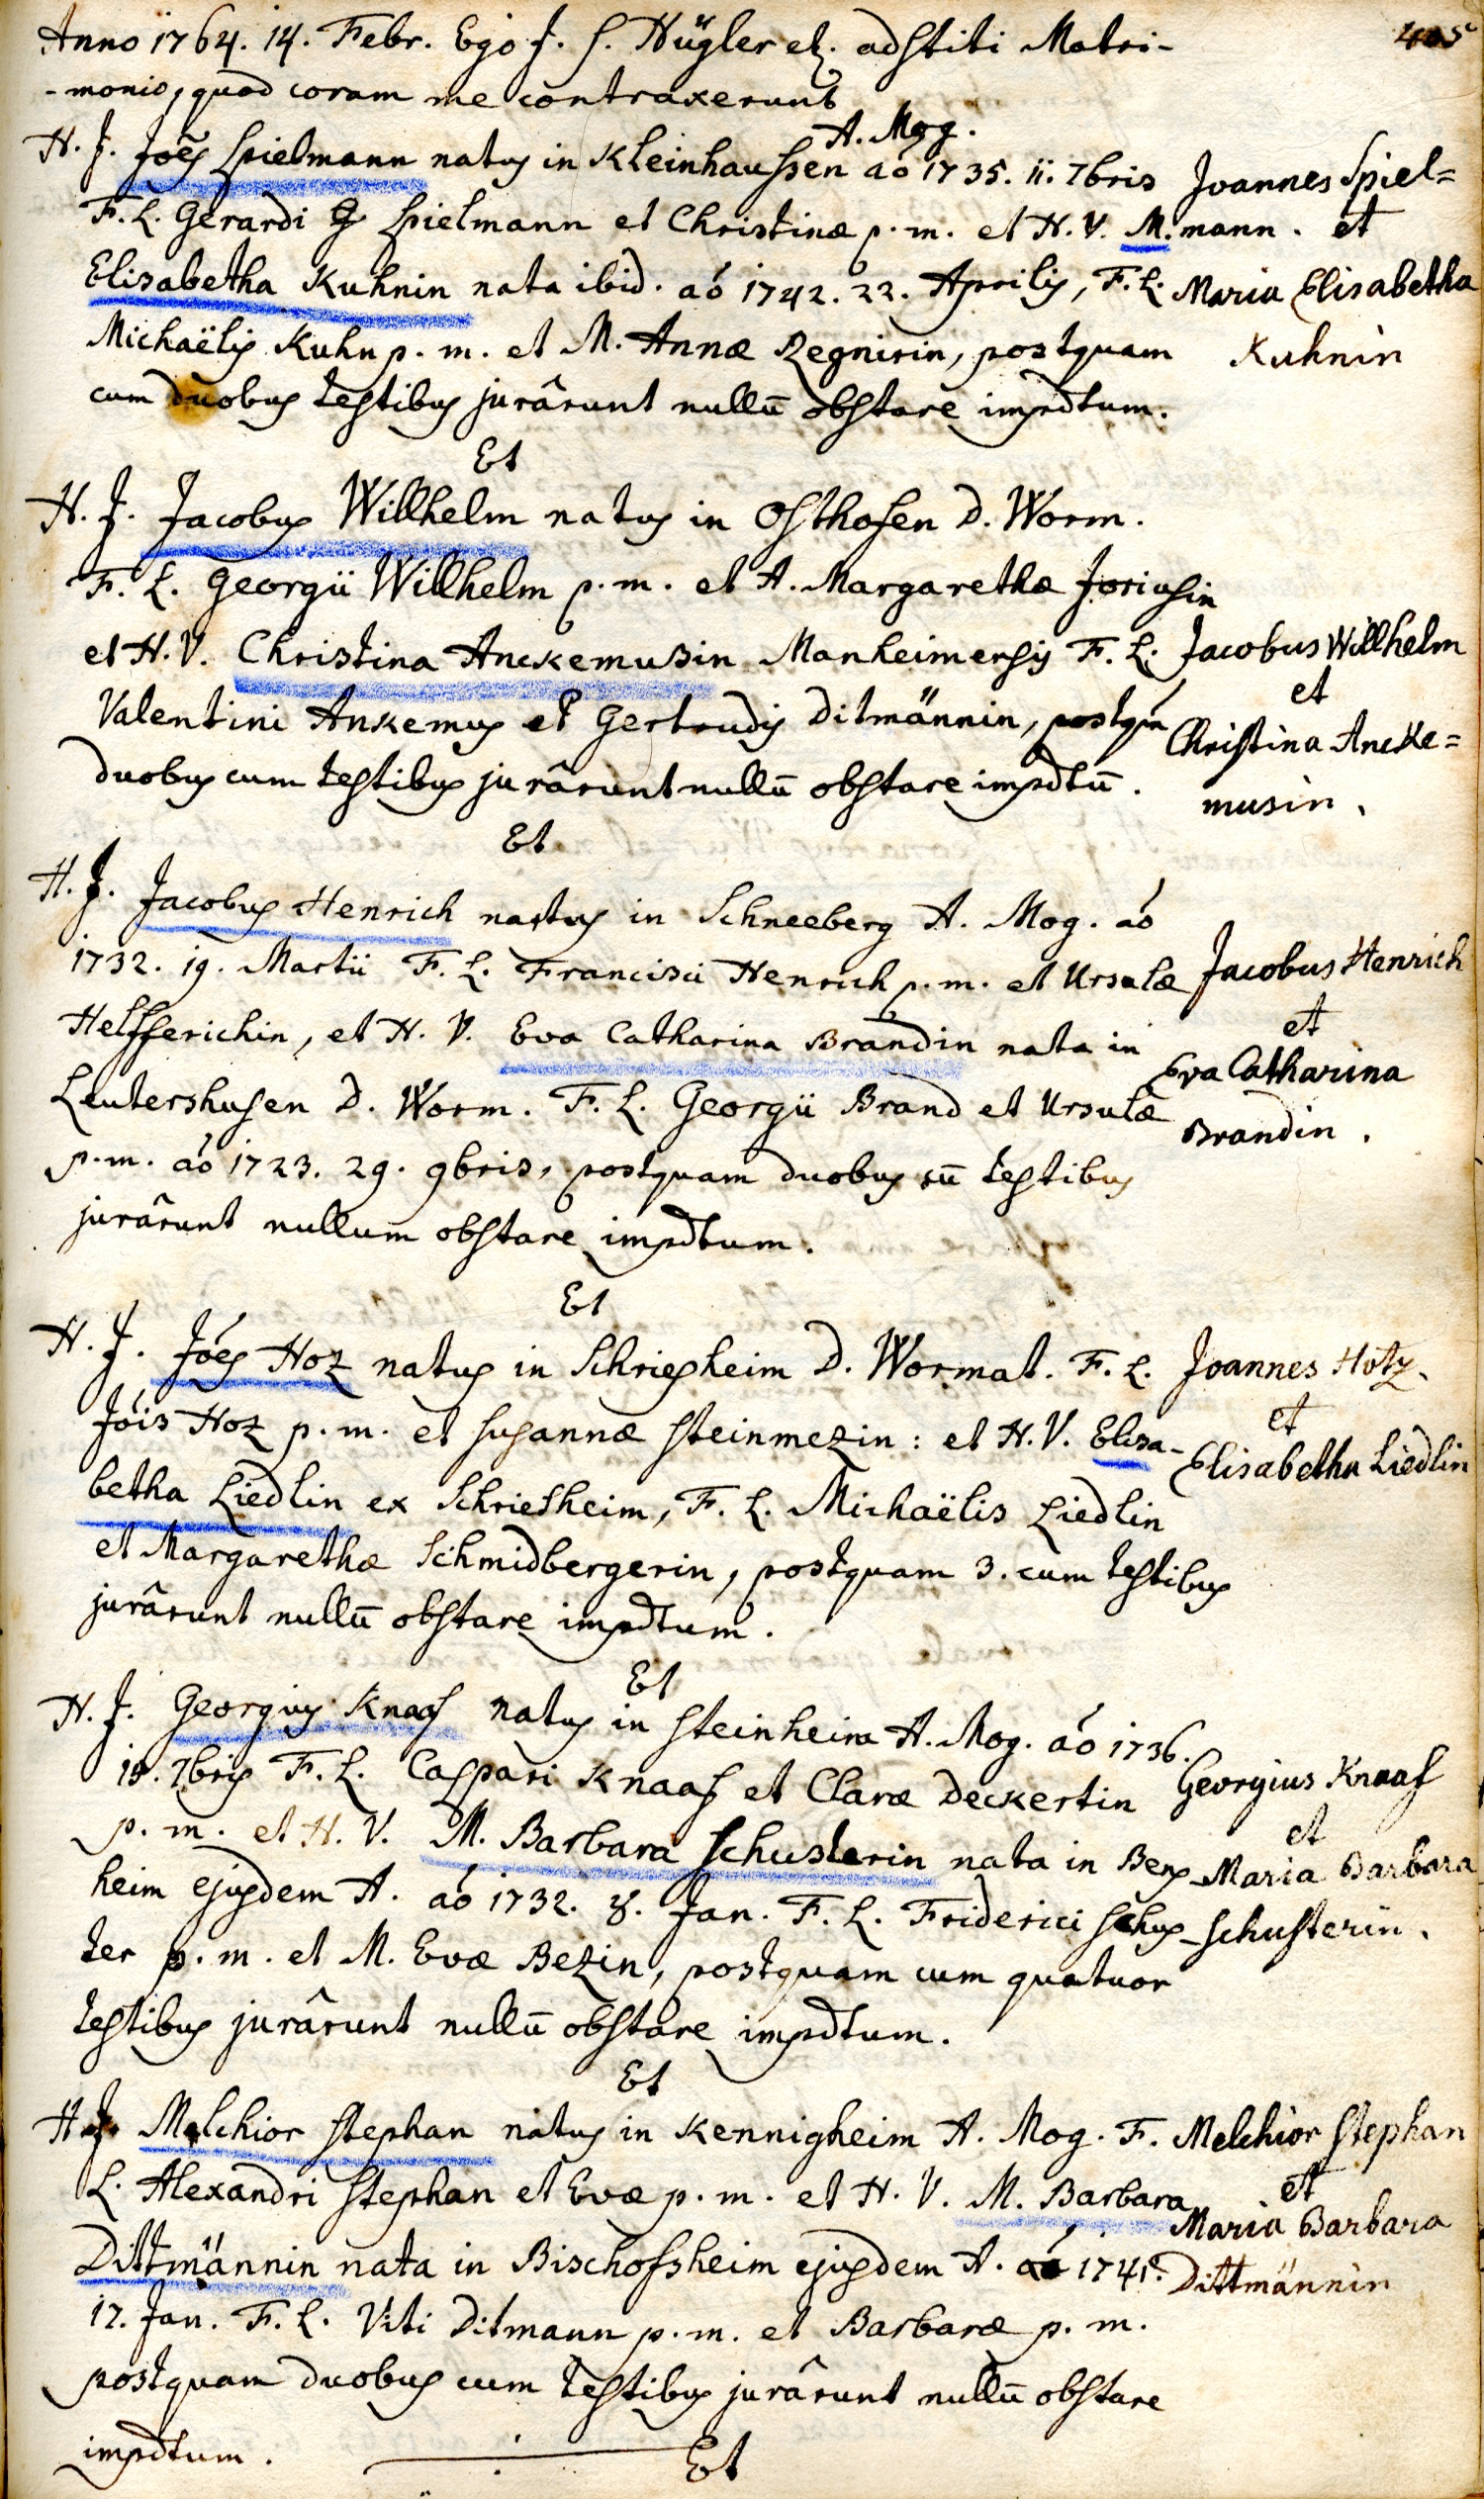 405
Anno 1764. 14. Febr. Ego J. S. Hügler etz. adstiti Matri-
-monio, quod coram me contraxerunt
A. Mog.
H. J. Joẽs Spielmann natus in Kleinhaussen aó 1735. ii. 7bris
F. L. Gerardi Spielmann et Christinæ p. m. et H. V. M.
Elisabetha Kuhnin nata ibid. aó 1742. 22. Aprilis, F. L.
Michaëlis Kuhn p. m. et M. Annæ Regnirin, postquam
cum duobus testibus jurârunt nullū obstare impdtum.
Joannes Spiel=
mann. et
Maria Elisabetha
Kuhnin
Et
H. J. Jacobus Willhelm natus in Osthofen D. Worm.
F. L. Georgii Willhelm p. m. et A. Margarethæ Joriusin
et H. V. Christina Anckemusin Manheimensis F. L.
Valentini Ankemus et Gertrudis Ditmännin, postqm
duobus cum testibus jurârunt nullū obstare impdtū.
Jacobus Willhelm
et
Christina Ancke=
musin.
Et
H. J. Jacobus Henrich natus in Schneeberg A. Mog. aó
1732. 19. Martii F. L. Francisci Henrich p. m. et Ursulæ
Helfferichin, et H. V. Eva Catharina Brandin nata in
Leutershusen D. Worm. F. L. Georgii Brand et Ursulæ
p. m. aó 1723. 29. 9bris, postquam duobus cū testibus
jurârunt nullum obstare impdtum.
Jacobus Henrich
et
Eva Catharina
Brandin.
Et
H. J. Jóes Hoz natus in Schriesheim D. Wormat. F. L.
Jóis Hoz p. m. et Susannæ Steinmezin: et H. V. Elisa-
betha Liedlin ex Schriesheim, F. L. Michaëlis Liedlin
et Margarethæ Schmidbergerin, postquam 3. cum testibus
jurârunt nullū obstare impdtum.
Joannes Hotz.
et
Elisabetha Liedlin
Et
H. J. Georgius Knaaf natus in Steinheim A. Mog. aó 1736.
18. 7bris F. L. Caspari Knaaf et Claræ Deckertin
p. m. et H. V. M. Barbara Schusterin nata in Bens
heim ejusdem A. aó 1732. 8. Jan. F. L. Friderici Schus-
ter p. m. et M. Evæ Bezin, postquam cum quatuor
testibus jurârunt nullū obstare impdtum.
Georgius Knaaf
et
Maria Barbara
Schusterin.
Et
H. J. Melchior Stephan natus in Kennigheim A. Mog. F.
L. Alexandri Stephan et Evæ p. m. et H. V. M. Barbara
Dittmännin nata in Bischofsheim ejusdem A. aó 1741.
17. Jan. F. L. Viti Ditmann p. m. et Barbaræ p. m.
postquam duobus cum testibus jurârunt nullū obstare
impdtum.
Melchior Stephan
et
Maria Barbara
Dittmännin
Et